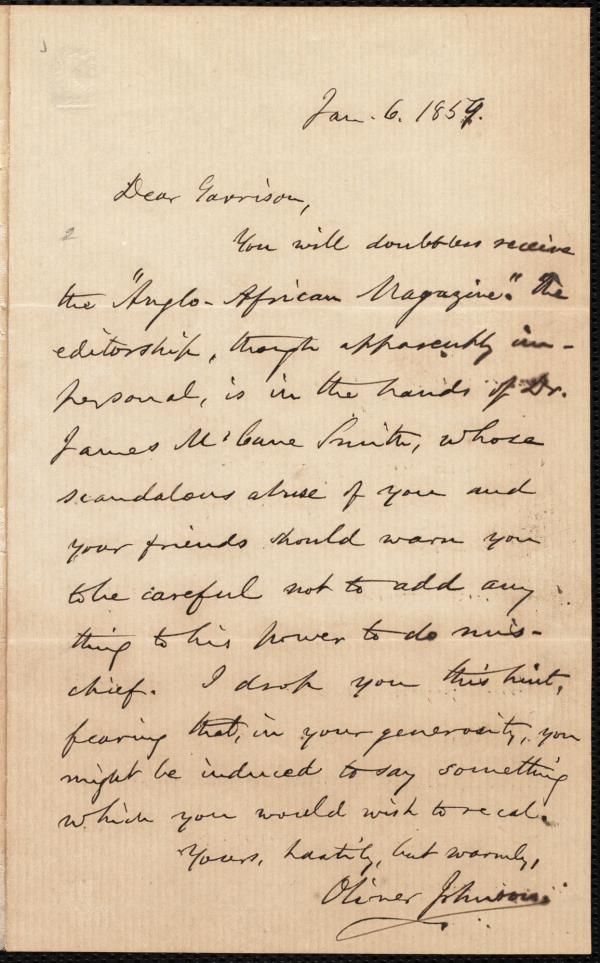 Jan. 6. 1859.
Dear Garrison,
2
You will doubtless receive
the "Anglo-African Magazine." The
editorship, though apparently im-
personal, is in the hands of Dr.
James M'Cune Smith, whose
scandalous abuse of you and
your friends should warn you
to be careful not to add any
thing to his power to do mis-
chief. I drop you this hint,
fearing that, in your generosity, you
might be induced to say something
which you would wish to recal.
Yours, hastily, but warmly,
Oliver Johnson